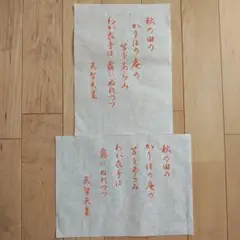 秋の田の
かりほの庵の
苫をあらみ
わが衣手は 露にぬれつつ
天智天皇
秋の田の
かりほの庵の
苫をあらみ
わが衣手は
露にぬれつつ
天智天皇